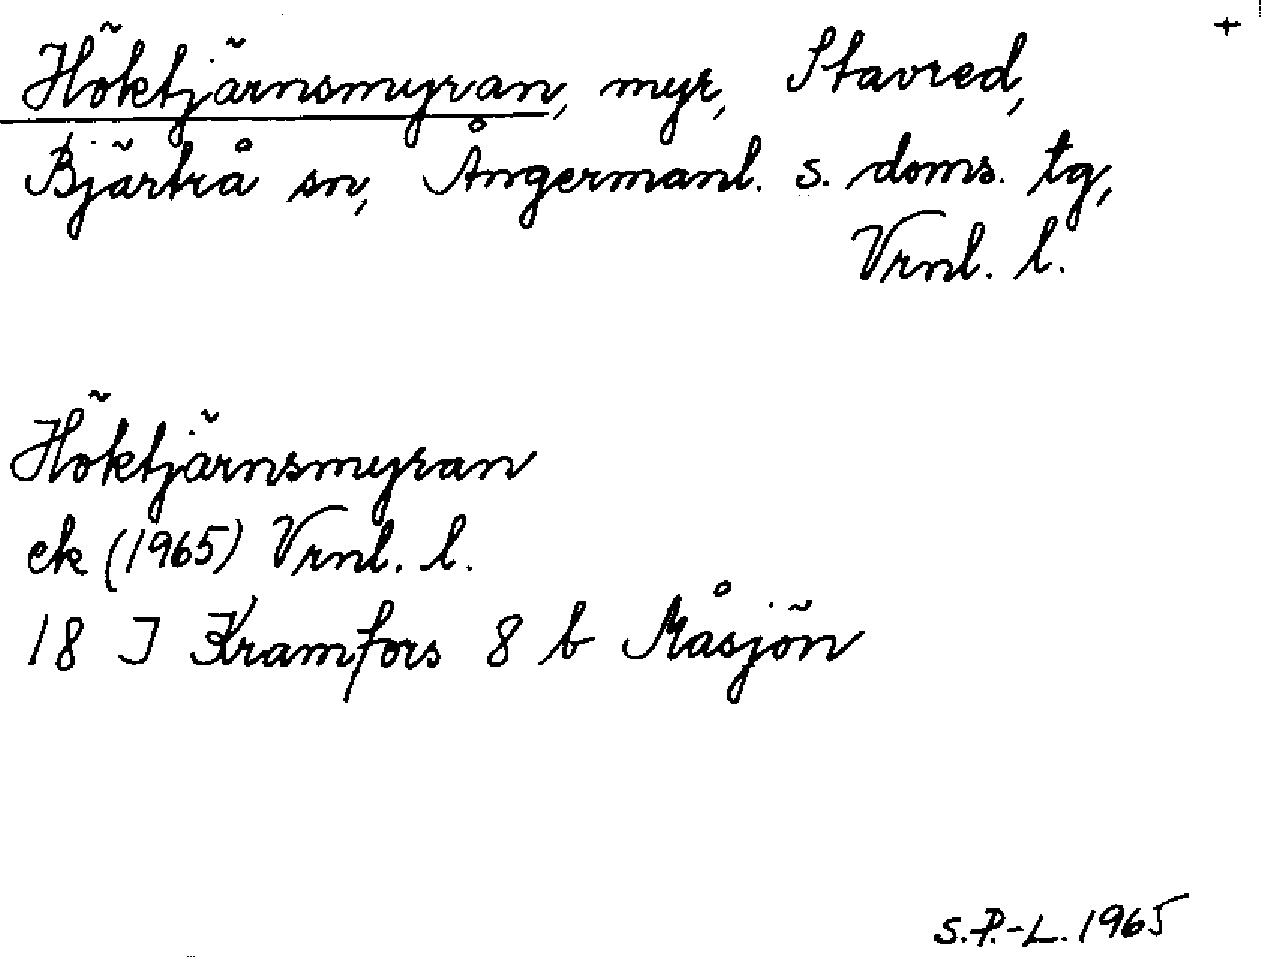 +
Höktjärnsmyran, myr, Stavred,
Bjärtrå sn, Ångermanl. s. doms. tg,
Vrnl. l.
Höktjärnsmyran
ek (1965) Vrnl. l.
18 I Kramfors 8 b Måsjön
S.P.-L. 1965